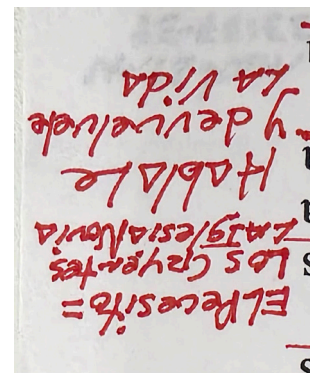 EL Pecesito =
Los Creyentes
LA Iglesia Novia
HAblAle
y devuelvele
LA Vida